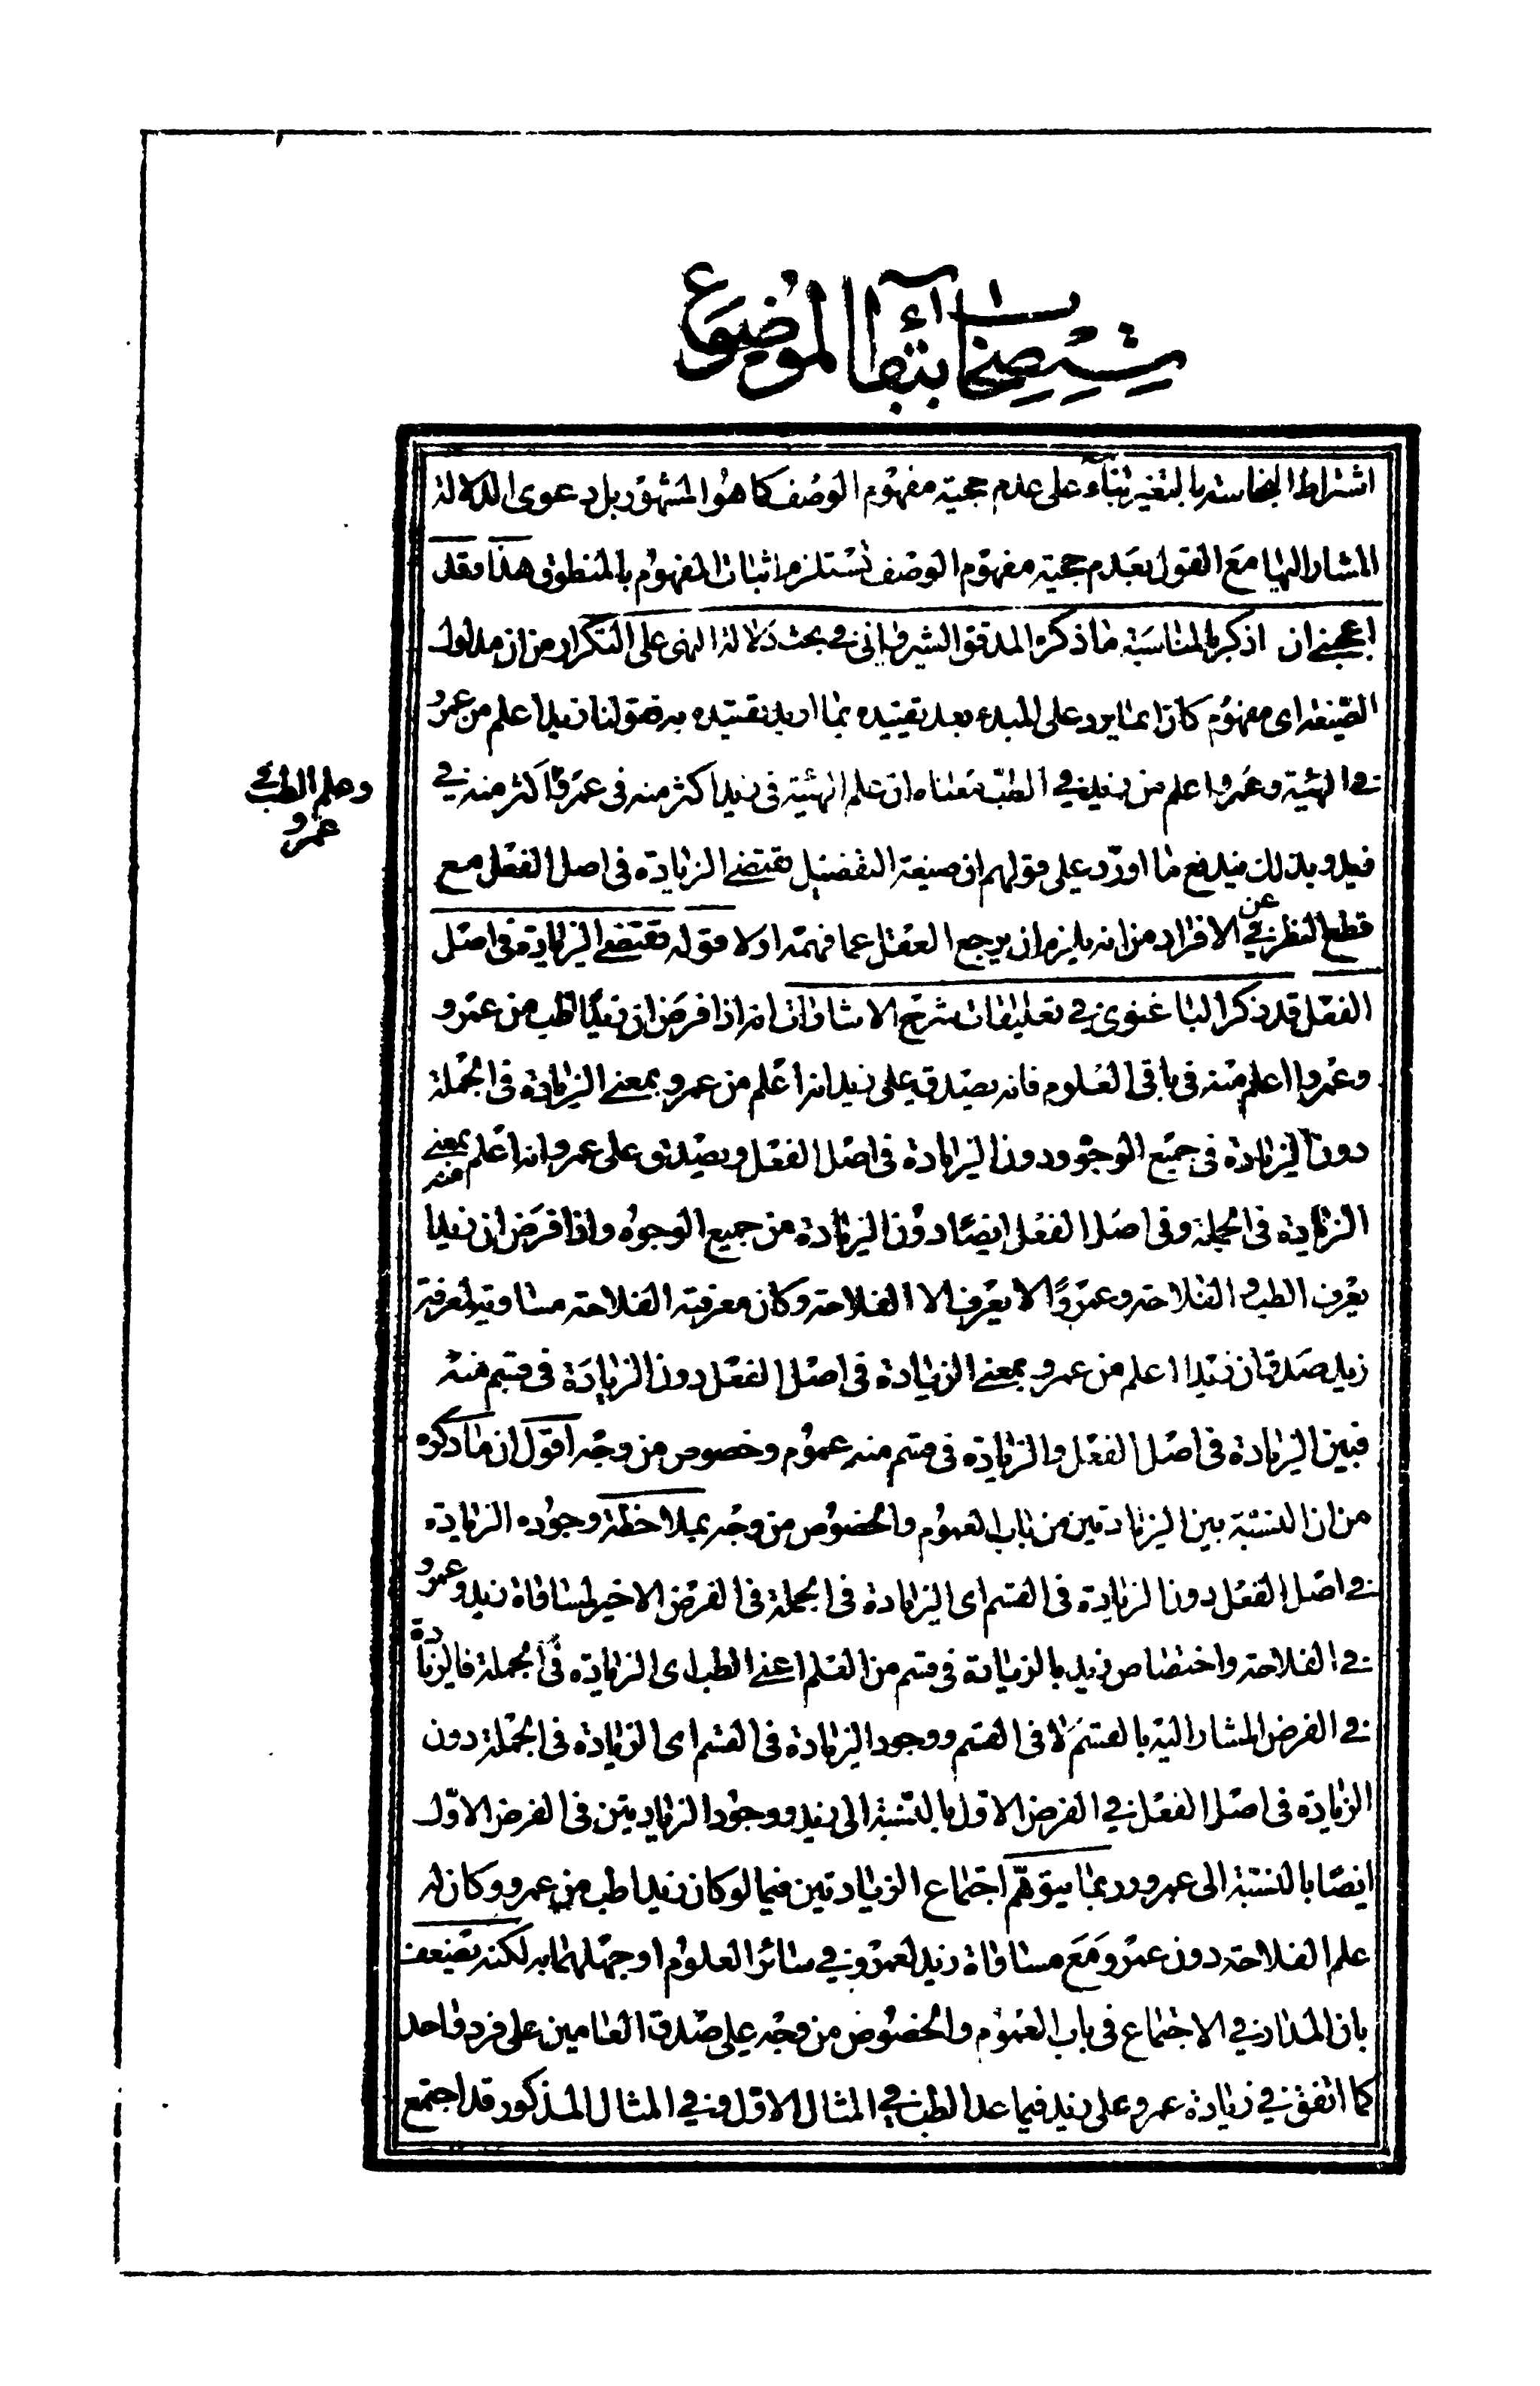 في استصحاب بقاء الموضوع
اشتراط النجاسة بالتغير بناء على عدم حجية مفهوم الوصف كما هو المشهور بل دعوى الدلالة
المشار اليها مع القول بعدم حجية مفهوم الوصف تستلزم اثبات المفهوم بالمنطوق هذا وقد
اعجبني ان اذكر بالمناسبة ما ذكره المدقق الشيرواني في بحث دلالة النهى على التكرار من ان مدلول
الصيغة اى مفهوم كان انما يرد على المبدء بعد تقييده بما اريد تقييده به فقولنا زيد اعلم من عمرو
في الهيئة وعمرو اعلم من زيد في الطب معناه ان علم الهيئة فى زيد اكثر منه فى عمرو اكثر منه في
وعلم الطب في
عمرو
زيد وبذلك يندفع ما اورد على قولهم ان صيغة التفضيل تقتضي الزيادة فى اصل الفعل مع
قطع النظر عن الافراد من انه يلزم ان يرجع العقل عما فهمه اولا قوله تقتضي الزيادة فى اصل
الفعل قد ذكر الباغنوى في تعليقات شرح الاشارات انه اذا فرض ان زيدا اطب من عمرو
وعمروا اعلم منه فى باقى العلوم فانه يصدق على زيد انه اعلم من عمرو بمعنى الزيادة فى الجملة
دون الزيادة فى جميع الوجوه ودون الزيادة فى اصل الفعل ويصدق على عمرو انه اعلم منه بمعنى
الزيادة فى الجملة وفى اصل الفعل ايضا دون الزيادة من جميع الوجوه واذا فرض ان زيدا
يعرف الطب و الفلاحة وعمروا لا يعرف الا الفلاحة وكان معرفته الفلاحة مساوية لمعرفة
زيد صدق ان زيدا اعلم من عمرو بمعنى الزيادة فى اصل الفعل دون الزيادة فى قسم منه
فبين الزيادة فى اصل الفعل والزيادة فى قسم منه عموم وخصوص من وجه اقول ان ما ذكره
من ان النسبة بين الزيادتين من باب العموم والخصوص من وجه بملاحظة وجوده الزيادة
في اصل الفعل دون الزيادة فى القسم اى الزيادة فى الجملة فى الفرض الاخير لمساواة زيد وعمرو
في الفلاحة واختصاص زيد بالزيادة فى قسم من العلم اعنى الطب اى الزيادة فى الجملة فالزيادة
في الفرض المشار اليه بالقسم لا فى القسم ووجود الزيادة فى القسم اى الزيادة فى الجملة دون
الزيادة فى اصل الفعل في الفرض الاول بالنسبة الى زيد ووجود الزيادتين فى الفرض الاول
ايضا بالنسبة الى عمرو وربما يتوهم اجتماع الزيادتين فيما لو كان زيد اطب من عمرو وكان له
علم الفلاحة دون عمرو مع مساواة زيد لعمرو في سائر العلوم او جهلهما به لكنه يضعف
بان المدار في الاجتماع فى باب العموم والخصوص من وجه على صدق العامين على فرد واحد
كما اتفق في زيادة عمرو على زيد فيما عدا الطب في المثال الاول وفي المثال المذكور قد اجتمع